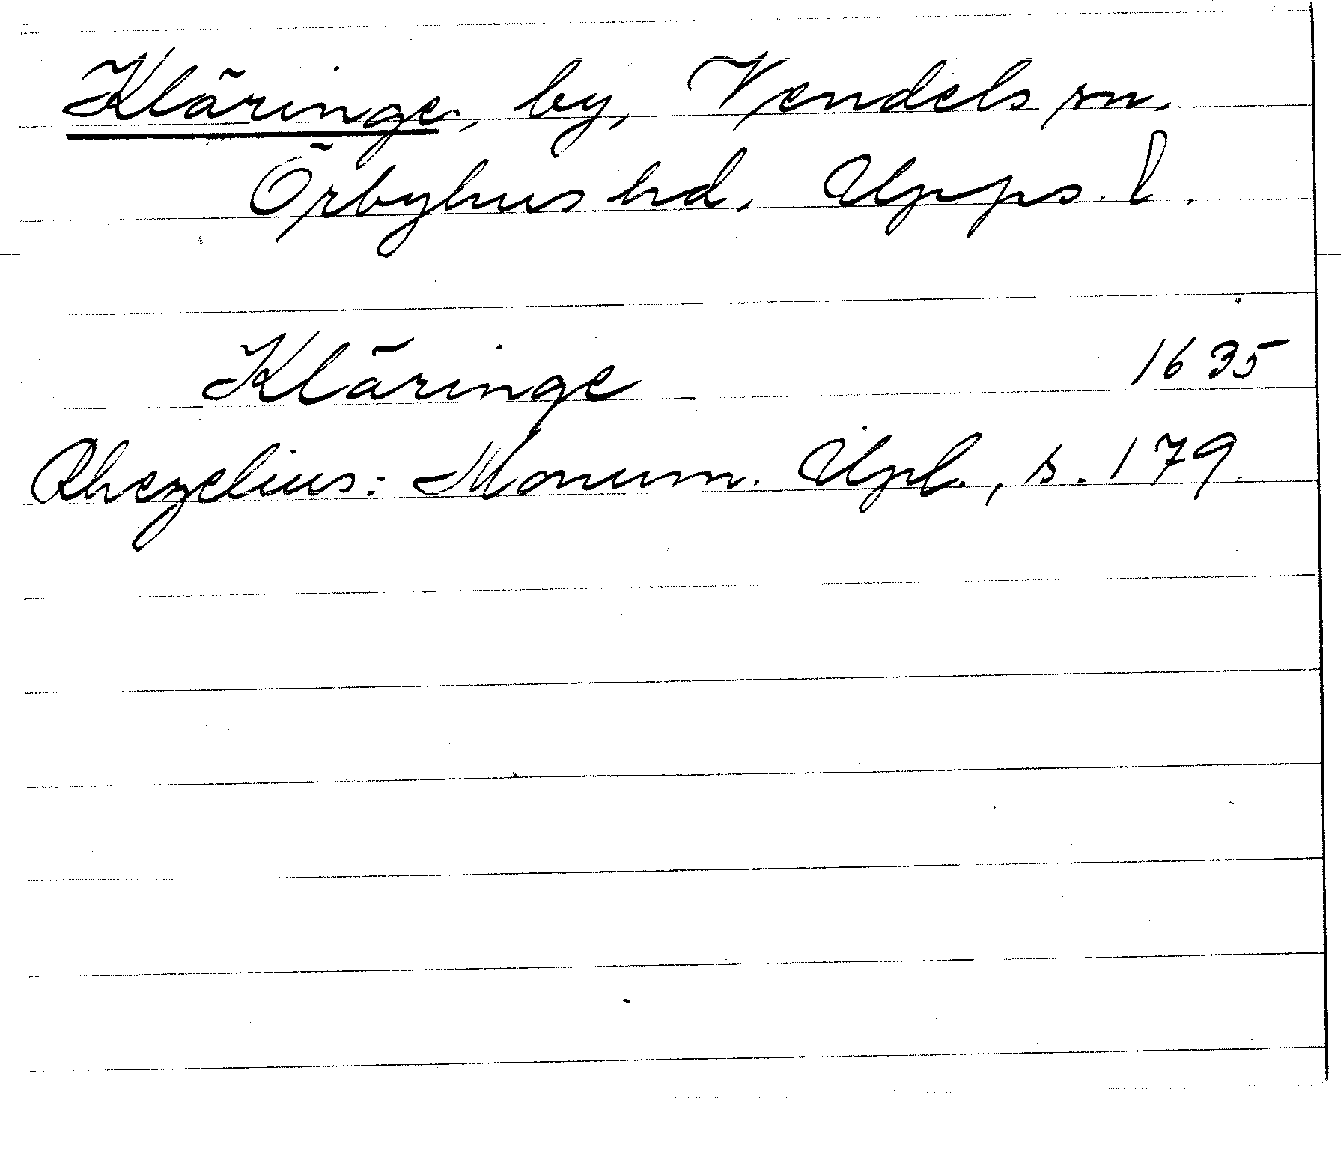 Kläringe, by, Vendels sn,
Örbyhus hd, Upps. l.
Kläringe 1635
Rhezelius: Monum. Upl., s. 179.